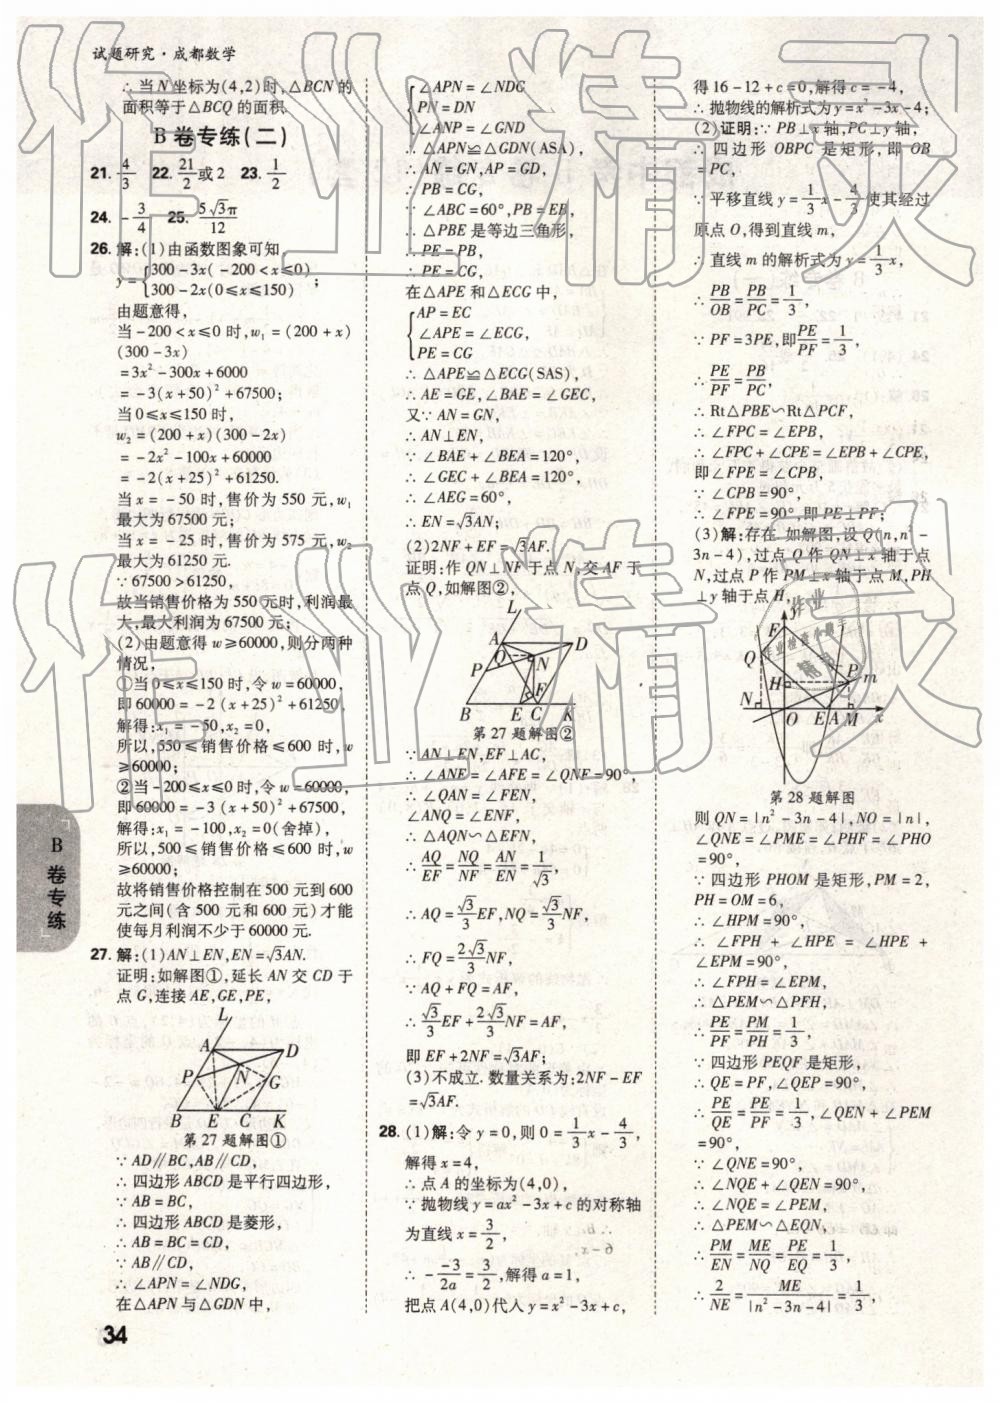 试题研究·成都数学
∴当N坐标为(4,2)时,△BCN的
面积等于△BCQ的面积.
B卷专练(二)
21. 4/3 22. 21/2或2 23. 1/2
24. -3/4 25. 5√3π/12
26. 解:(1)由函数图象可知
y={300-3x(-200<x≤0)
300-2x(0≤x≤150);
由题意得,
当-200<x≤0时,w₁=(200+x)
(300-3x)
=3x²-300x+6000
=-3(x+50)²+67500;
当0≤x≤150时,
w₂=(200+x)(300-2x)
=-2x²-100x+60000
=-2(x+25)²+61250.
当x=-50时,售价为550元,w₁
最大为67500元;
当x=-25时,售价为575元,w₂
最大为61250元.
∵67500>61250,
故当销售价格为550元时,利润最
大,最大利润为67500元;
(2)由题意得w≥60000,则分两种
情况,
①当0≤x≤150时,令w=60000,
即60000=-2(x+25)²+61250,
解得:x₁=-50,x₂=0,
所以,550≤销售价格≤600时,w
≥60000;
②当-200≤x≤0时,令w=60000,
即60000=-3(x+50)²+67500,
解得:x₁=-100,x₂=0(舍掉),
所以,500≤销售价格≤600时,w
≥60000;
故将销售价格控制在500元到600
元之间(含500元和600元)才能
使每月利润不少于60000元.
27. 解:(1)AN⊥EN,EN=√3AN.
证明:如解图①,延长AN交CD于
点G,连接AE,GE,PE,
L
A D
P N G
B E C K
第27题解图①
∵AD∥BC,AB∥CD,
∴四边形ABCD是平行四边形,
∵AB=BC,
∴四边形ABCD是菱形,
∴AB=BC=CD,
∵AB∥CD,
∴∠APN=∠NDG,
在△APN与△GDN中,
{∠APN=∠NDG
PN=DN
∠ANP=∠GND
∴△APN≌△GDN(ASA),
∴AN=GN,AP=GD,
∴PB=CG,
∵∠ABC=60°,PB=EB,
∴△PBE是等边三角形,
∴PE=PB,
∴PE=CG,
在△APE和△ECG中,
{AP=EC
∠APE=∠ECG,
PE=CG
∴△APE≌△ECG(SAS),
∴AE=GE,∠BAE=∠GEC,
又∵AN=GN,
∴AN⊥EN,
∵∠BAE+∠BEA=120°,
∴∠GEC+∠BEA=120°,
∴∠AEG=60°,
∴EN=√3AN;
(2)2NF+EF=√3AF.
证明:作QN⊥NF于点N,交AF于
点Q,如解图②,
L
A D
Q N
P
F
B E C K
第27题解图②
∵AN⊥EN,EF⊥AC,
∴∠ANE=∠AFE=∠QNE=90°,
∴∠QAN=∠FEN,
∠ANQ=∠ENF,
∴△AQN∽△EFN,
∴AQ/EF=NQ/NF=AN/EN=1/√3,
∴AQ=√3/3EF,NQ=√3/3NF,
∴FQ=2√3/3NF,
∵AQ+FQ=AF,
∴√3/3EF+2√3/3NF=AF,
即EF+2NF=√3AF;
(3)不成立.数量关系为:2NF-EF
=√3AF.
28. (1)解:令y=0,则0=1/3x-4/3,
解得x=4,
∴点A的坐标为(4,0),
∵抛物线y=ax²-3x+c的对称轴
为直线x=3/2,
∴- -3/2a=3/2,解得a=1,
把点A(4,0)代入y=x²-3x+c,
得16-12+c=0,解得c=-4,
∴抛物线的解析式为y=x²-3x-4;
(2)证明:∵PB⊥x轴,PC⊥y轴,
∴四边形OBPC是矩形,即OB
=PC,
∵平移直线y=1/3x-4/3使其经过
原点O,得到直线m,
∴直线m的解析式为y=1/3x,
∴PB/OB=PB/PC=1/3,
∵PF=3PE,即PE/PF=1/3,
∴PE/PF=PB/PC,
∴Rt△PBE∽Rt△PCF,
∴∠FPC=∠EPB,
∴∠FPC+∠CPE=∠EPB+∠CPE,
即∠FPE=∠CPB,
∵∠CPB=90°,
∴∠FPE=90°,即PE⊥PF;
(3)解:存在.如解图,设Q(n,n²-
3n-4),过点Q作QN⊥x轴于点
N,过点P作PM⊥x轴于点M,PH
⊥y轴于点H,
y
F
Q P
H m
N O E A M x
第28题解图
则QN=|n²-3n-4|,NO=|n|,
∠QNE=∠PME=∠PHF=∠PHO
=90°,
∵四边形PHOM是矩形,PM=2,
PH=OM=6,
∴∠HPM=90°,
∴∠FPH+∠HPE=∠HPE+
∠EPM=90°,
∴∠FPH=∠EPM,
∴△PEM∽△PFH,
∴PE/PF=PM/PH=1/3,
∵四边形PEQF是矩形,
∴QE=PF,∠QEP=90°,
∴PE/QE=PE/PF=1/3,∠QEN+∠PEM
=90°,
∵∠QNE=90°,
∴∠NQE+∠QEN=90°,
∴∠NQE=∠PEM,
∴△PEM∽△EQN,
∴PM/EN=ME/NQ=PE/EQ=1/3,
∴2/NE=ME/|n²-3n-4|=1/3,
B卷专练
34
作业精灵
作业精灵
作业检查小助手